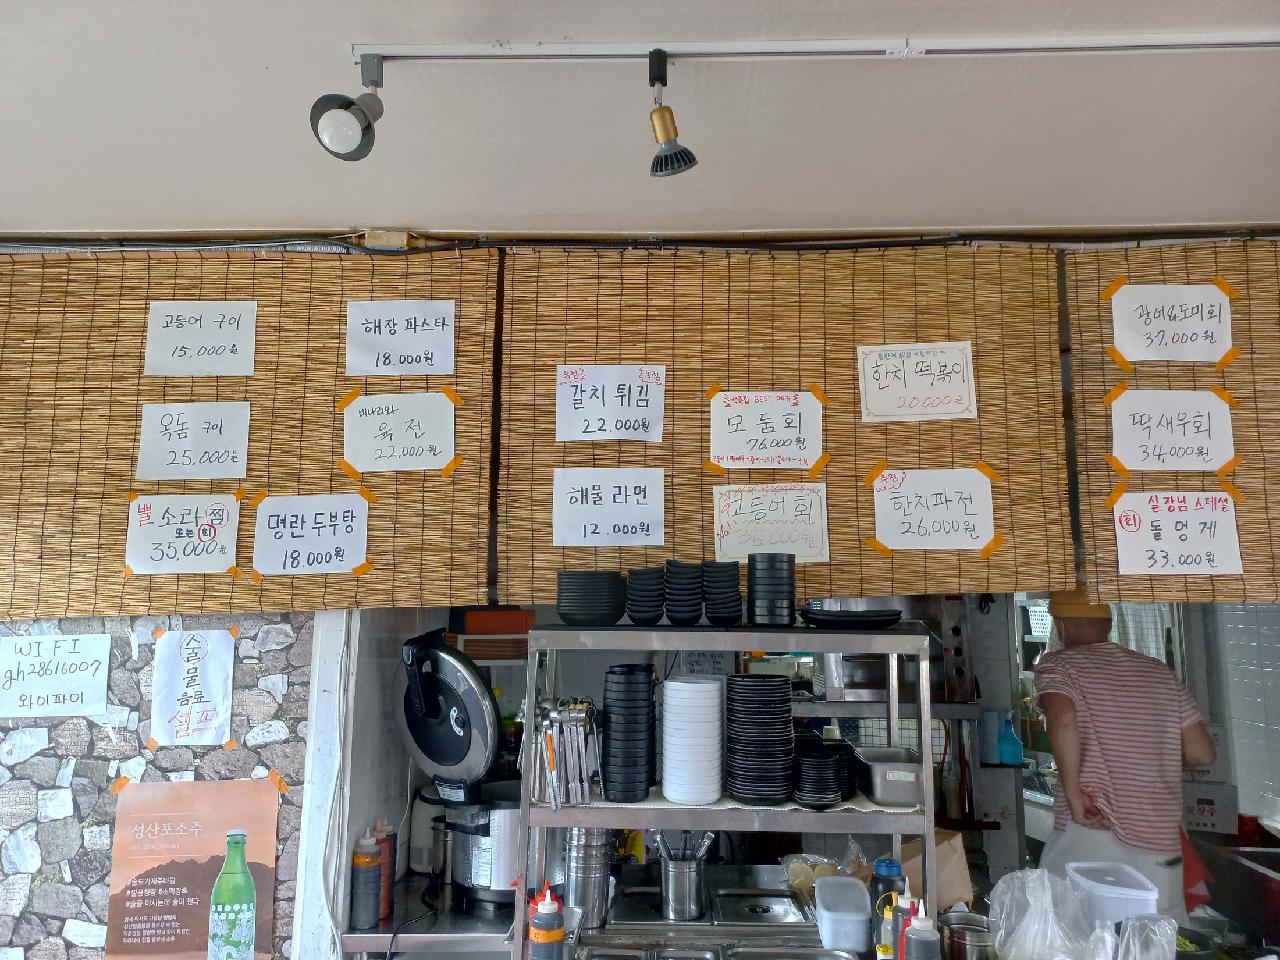 고등어 구이
15,000원
해장 파스타
18.000원
옥돔 구이
25,000원
미나리와
육전
22,000원
뿔 소라 찜
또는 회
35,000원
명란 두부탕
18.000원
갈치 튀김
22.000원
해물 라면
12.000원
BEST 메뉴
모둠회
76,000원
고등어 회
35,000원
한치 떡볶이
20,000원
추천
한치파전
26,000원
광어&도미회
37,000원
딱새우회
34,000원
실장님 스페셜
회 돌멍게
33.000원
WIFI
gh28616007
와이파이
술
물
음료
셀프
성산포소주